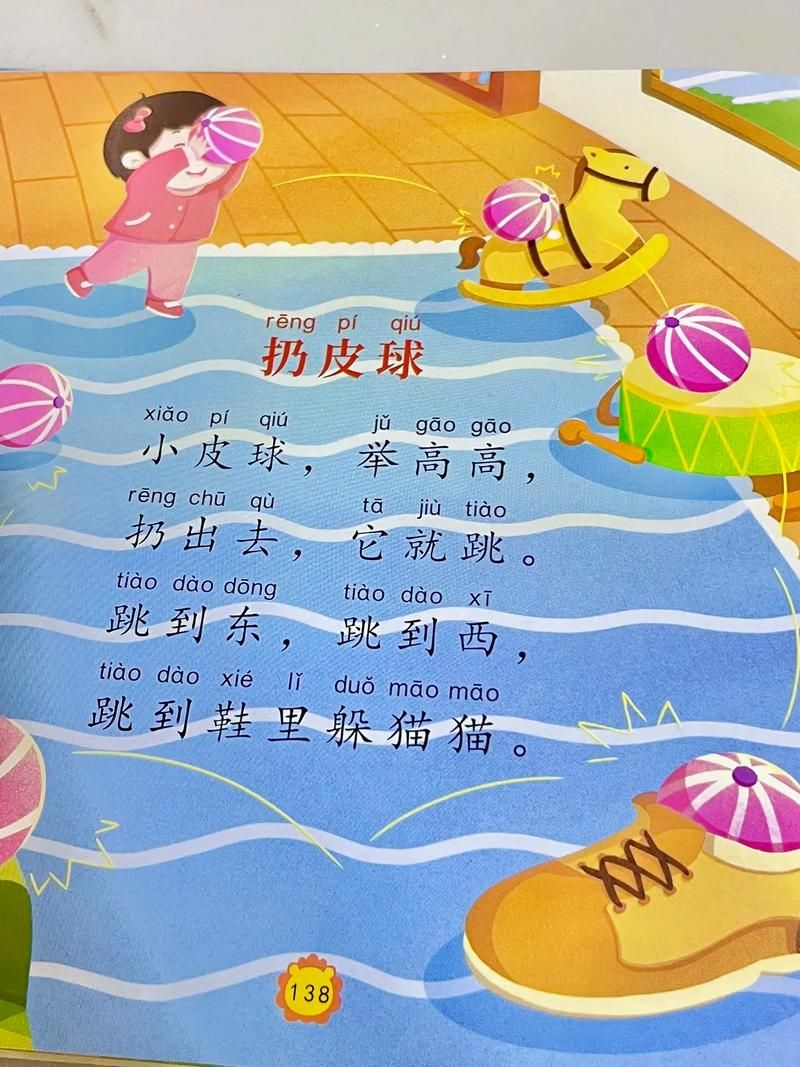 rēng pí qiú
扔皮球
xiǎo pí qiú jǔ gāo gāo
小皮球，举高高，
rēng chū qù tā jiù tiào
扔出去，它就跳。
tiào dào dōng tiào dào xī
跳到东，跳到西，
tiào dào xié lǐ duǒ māo māo
跳到鞋里躲猫猫。
138